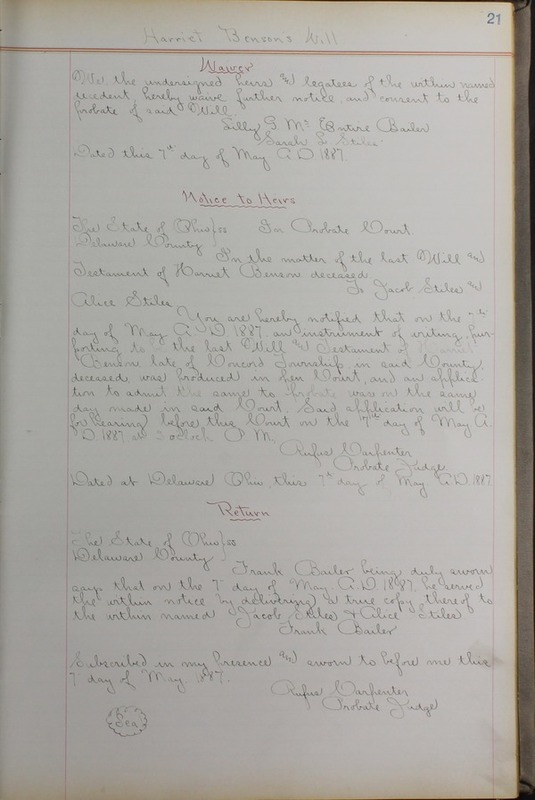 21
Harriet Benson's Will
Waiver
We the undersigned heirs and legatees of the within named
decedent, hereby waive further notice, and consent to the
probate of said Will.
Lilly G Mc Entire Bailer
Sarah G Stiles
Dated this 7th day of May A.D. 1887
Notice to Heirs
The State of Ohio } ss In Probate Court
Delaware County
In the matter of the last Will and
Testament of Harriet Benson deceased
To Jacob Stiles and
Alice Stiles
You are hereby notified that on the 7th
day of May A.D. 1887, an instrument of writing, pur-
porting to the last Will and Testament of Harriet
Benson late of Concord Township in said County,
deceased, was produced in open Court, and an applica-
tion to admit the same to probate, was on the same
day made in said Court. Said application will be
for hearing before this Court on the day of May A.
D. 1887, at o'clock P.M.
Rufus Carpenter
Probate Judge
Dated at Delaware Ohio, this 7th day of May A.D. 1887.
Return
The State of Ohio } ss
Delaware County
Frank Bailer being duly sworn
says that on the 7 day of May A.D. 1887, he served
the within notice by delivering a true copy thereof to
the within named Jacob Stiles & Alice Stiles
Frank Bailer
Subscribed in my presence and sworn to before me this
7 day of May 1887.
Rufus Carpenter
Probate Judge
Seal